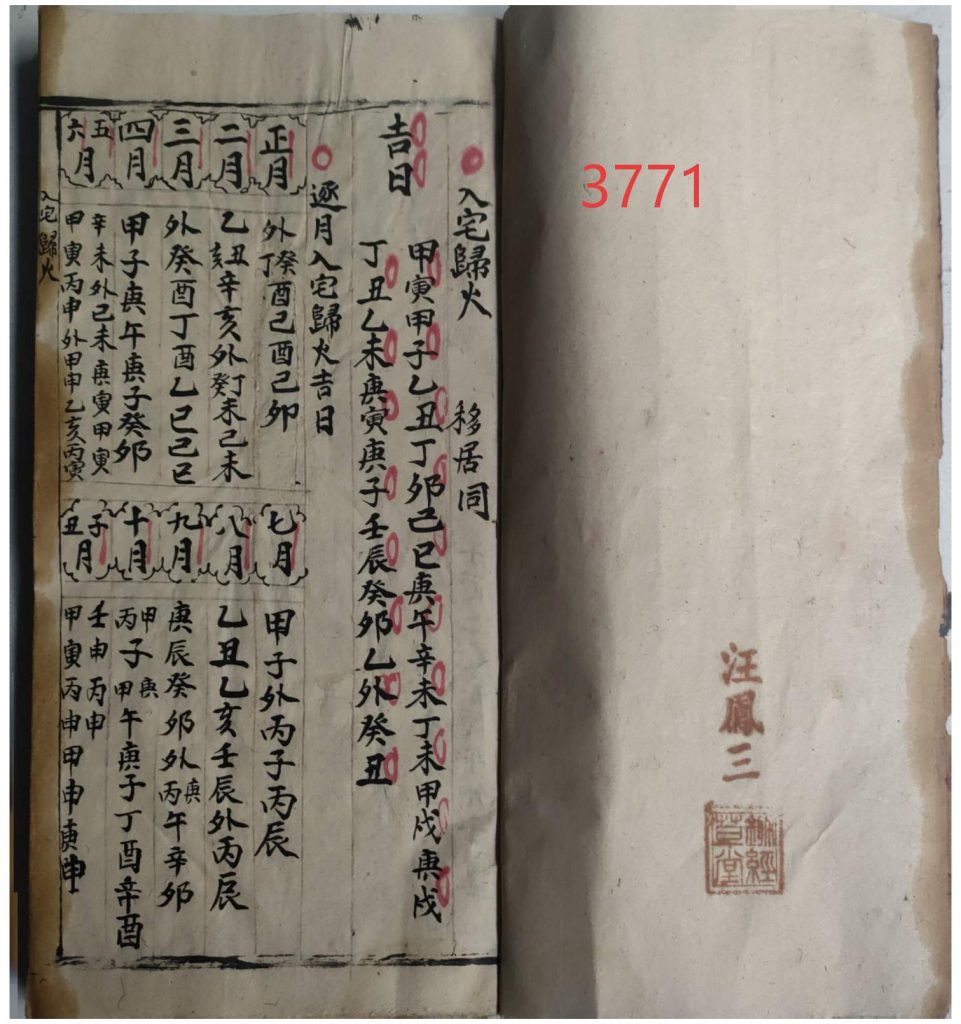 3771
汪鳳三
經
草堂
入宅歸火 移居同
吉日
甲寅甲子乙丑丁卯己巳庚午辛未丁未甲戌庚戌
丁丑乙未庚寅庚子壬辰癸卯乙外癸丑
逐月入宅歸火吉日
正月
外癸酉己酉己卯
丁
二月
乙丑辛亥外丁未己未
亥 癸
三月
外癸酉丁酉乙巳己巳
四月
甲子庚午庚子癸卯
五六月
辛未外己未庚寅甲寅
甲寅丙申外甲申乙亥丙寅
七月
甲子外丙子丙辰
八月
乙丑乙亥壬辰外丙辰
九月
庚辰癸卯外庚午辛卯
丙
十月
甲子庚午庚子丁酉辛酉
丙 甲
子丑月
壬申丙申
甲寅丙申甲申庚申
入宅歸火